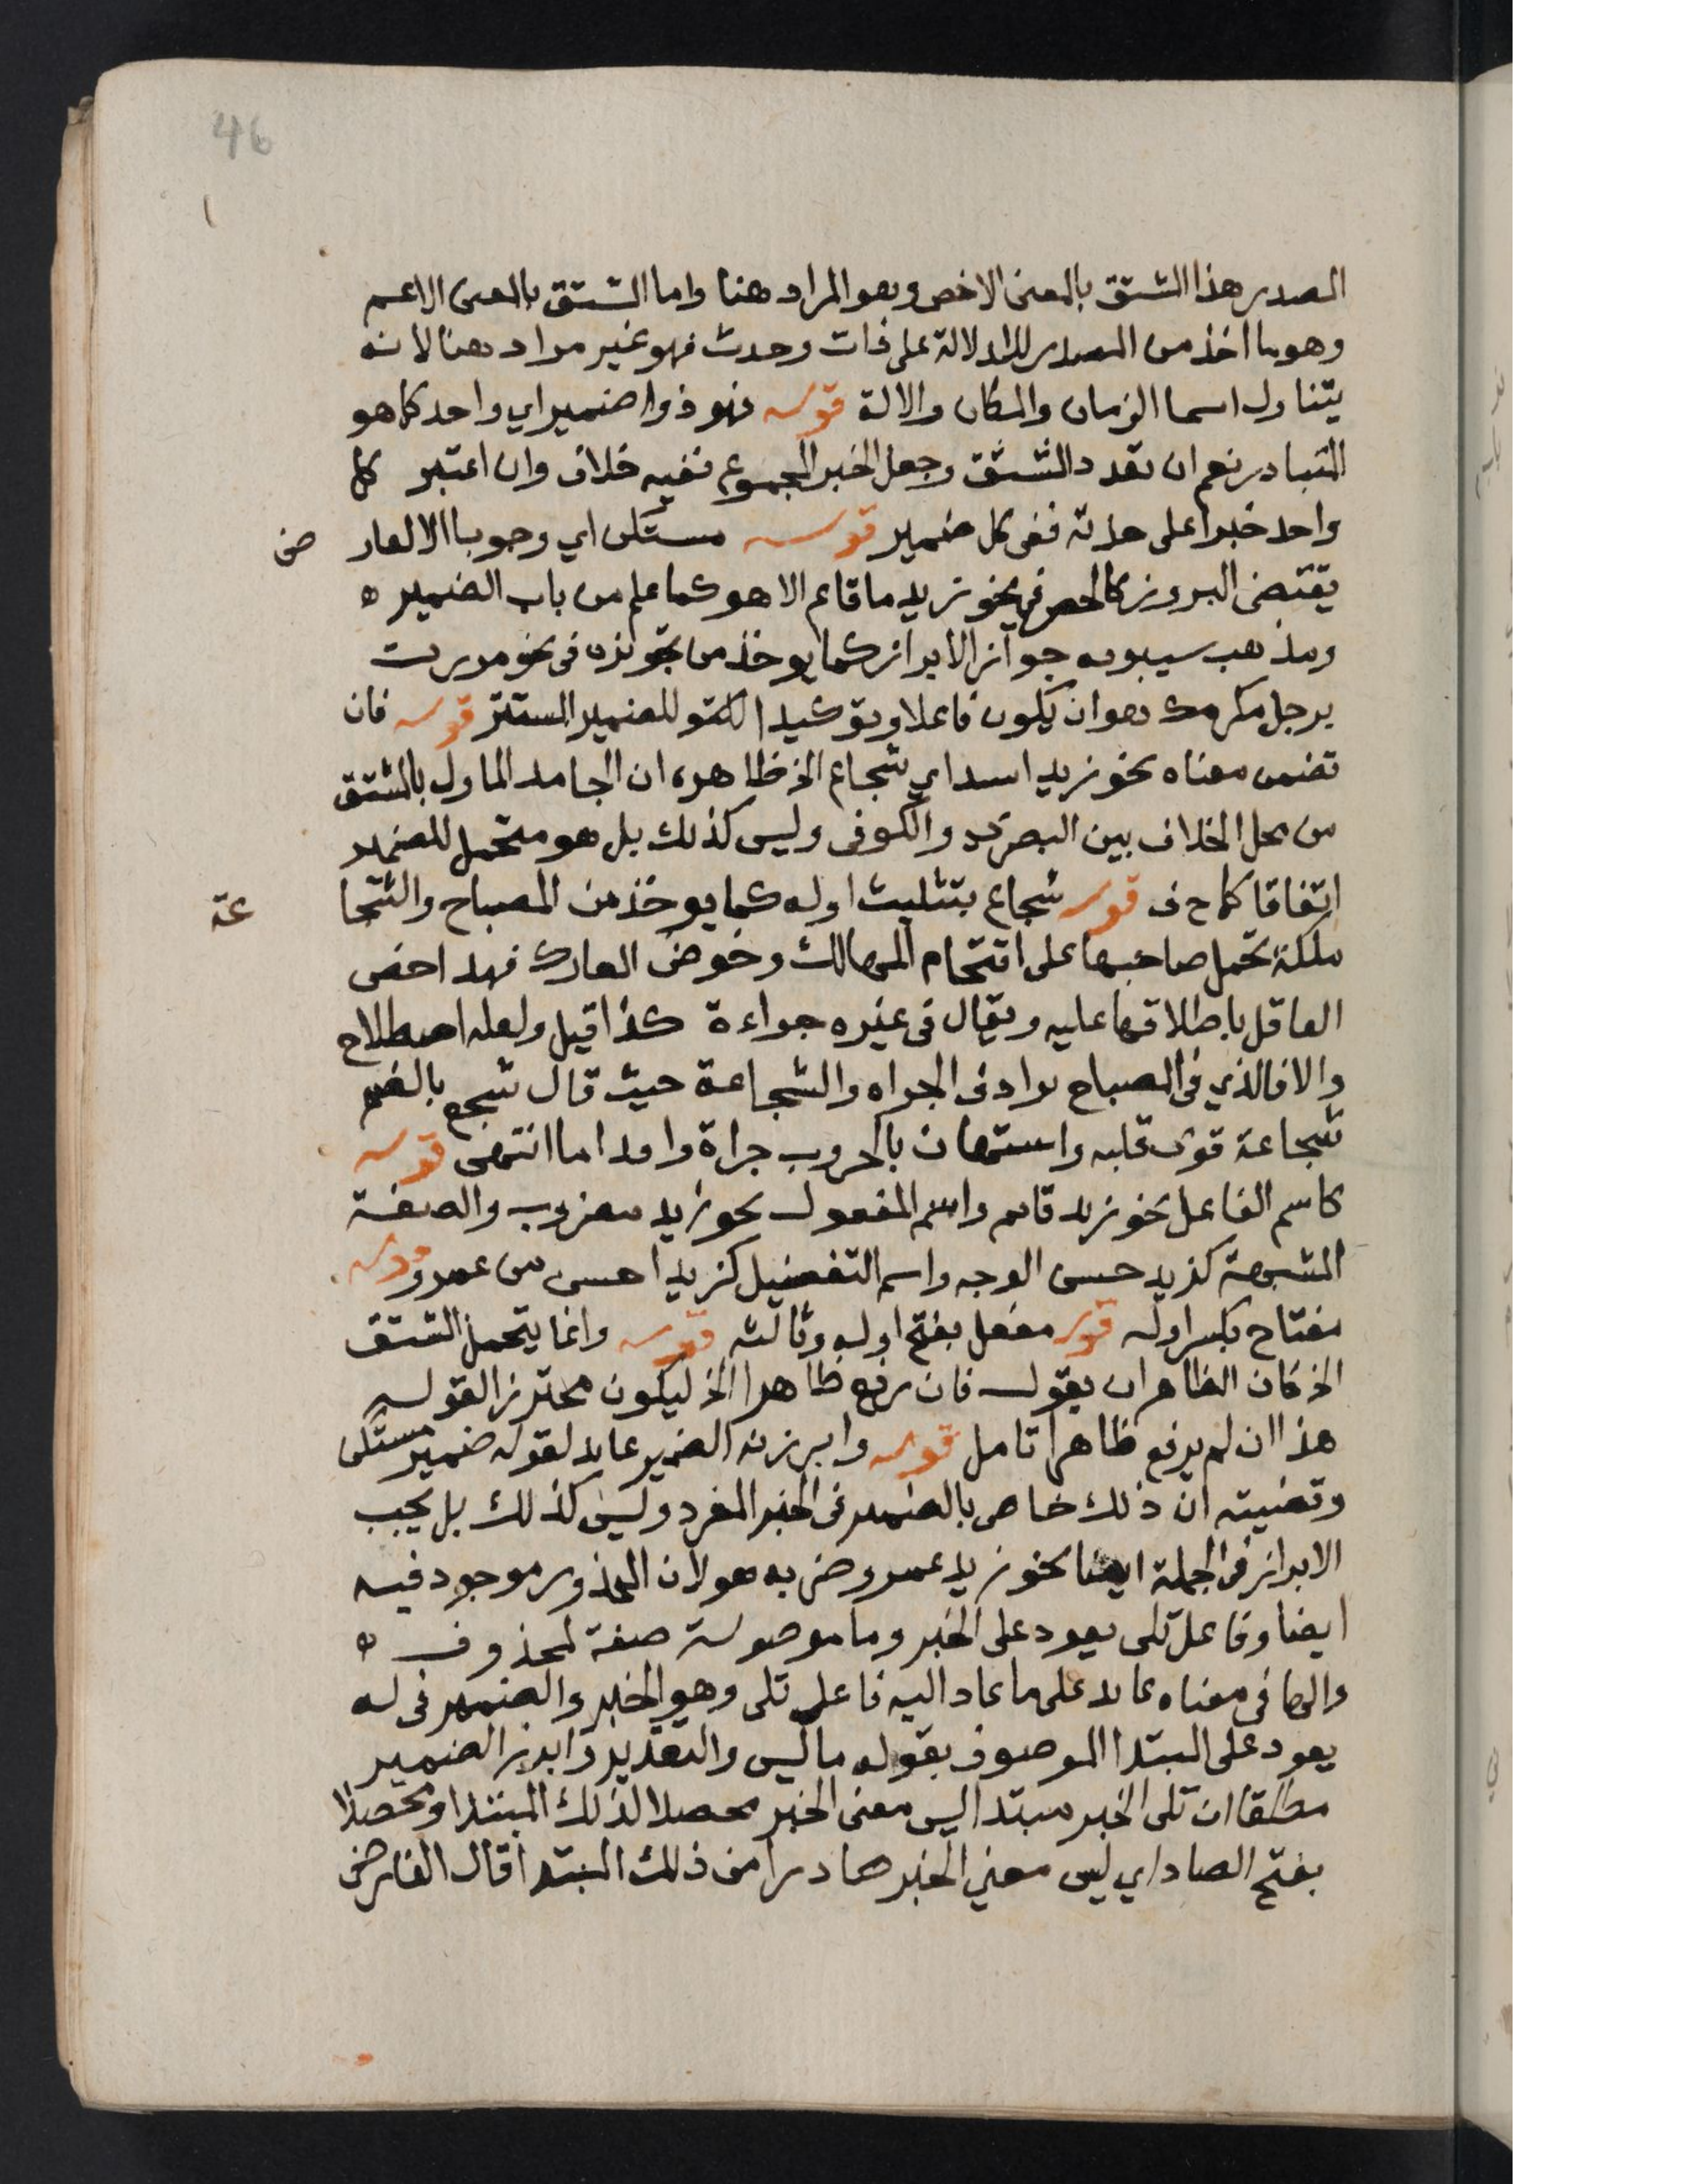 46
المصدر هذا المشتق بالمعنى الاخص وهو المراد هنا واما المشتق بالمعنى الاعم
وهو ما اخذ من المصدر للدلالة على ذات وحدث فهو غير مراد هنا لانه
يتناول اسما الزمان والمكان والالة قوله فهو ذو ضمير اي واحد كما هو
المتبادر نعم ان تعدد المشتق وجعل الخبر المجموع ففيه خلاف وان اعتبر كل
واحد خبرا على حدته ففى كل ضمير قوله مستكن اي وجوبا الا لعارض
يقتضى البروز كالحصر فى نحو زيد ما قائم الا هو كما علم من باب الضمير ه
ومذهب سيبويه جواز الابراز كما يوخذ من تجويزه فى نحو مررت
برجل مكرمك هو ان يكون فاعلا وتوكيدا للضمير المستتر قوله فان
تضمن معناه نحو زيد اسد اي شجاع الخ ظاهره ان الجامد الماول بالمشتق
من محل الخلاف بين البصرى والكوفى وليس كذلك بل هو متحمل للضمير
اتفاقا كما ح ف قوله شجاع بتثليث اوله كما يوخذ من المصباح والشجاعة
ملكة تحمل صاحبها على اقتحام المهالك وخوض المعارك فهذا اخص
العاقل باطلاقها عليه ويقال فى غيره جراءة كذا قيل ولعله اصطلاح
والا فالذي فى المصباح ترادف الجراه والشجاعة حيث قال شجع بالضم
شجاعة قوى قلبه واستهان بالحروب جراة واقداما انتهى قوله
كاسم الفاعل نحو زيد قائم واسم المفعول نحو زيد مضروب والصفة
المشبهة كزيد حسن الوجه واسم التفضيل كزيد احسن من عمرو قوله
مفتاح بكسر اوله قوله مفعل بفتح اوله وثالثه قوله وانما يتحمل المشتق
الخ كان الظاهر ان يقول فان رفع ظاهرا الخ ليكون محترز القوله
هذا ان لم يرفع ظاهرا تامل قوله وابرزنه الضمير عايد لقوله ضمير مستكن
وقضيته ان ذلك خاص بالضمير فى الخبر المفرد وليس كذلك بل يجب
الابراز فى الجملة ايضا نحو زيد عمرو ضربه هو لان المحذور موجود فيه
ايضا وفاعل تلى يعود على الخبر وما موصولة صفة لمحذوف ه
والها فى معناه عايد على ما عاد اليه فاعل تلى وهو الخبر والضمير فى له
يعود على المبتدا الموصوف بقوله ما ليس والتقدير وابرز الضمير
مطلقا ان تلى الخبر مبتدا ليس معنى الخبر محصلا لذلك المبتدا ومحصلا
بفتح الصاد اي ليس معني الخبر صادرا من ذلك المبتدا قال الفارضى